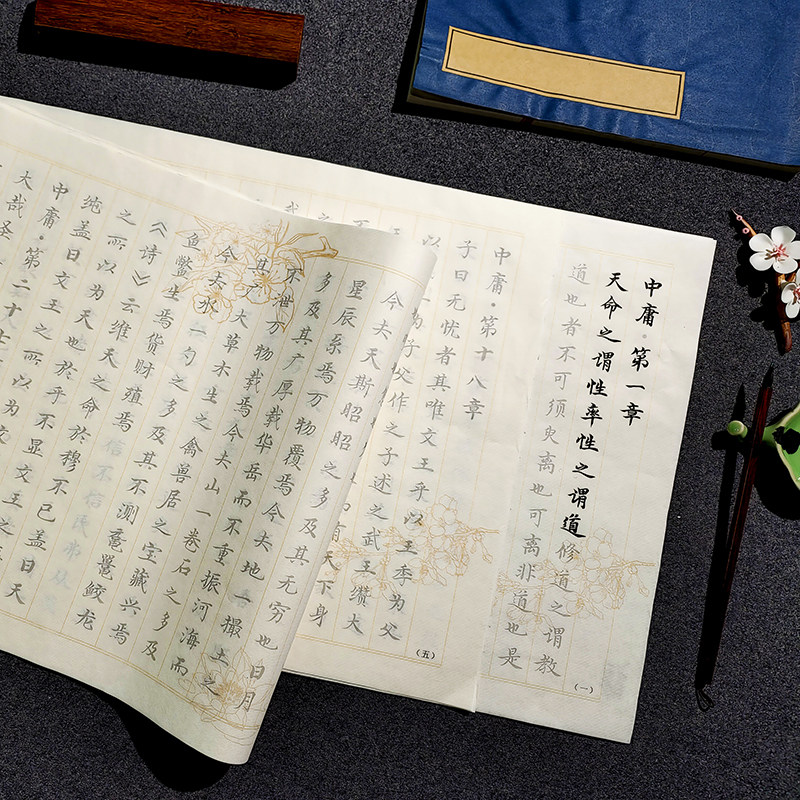 中庸·第一章
天命之谓性率性之谓道修道之谓教
道也者不可须臾离也可离非道也是
(一)
中庸·第十八章
子曰无忧者其唯文王乎以王季为父
为子父作之子述之武王缵大
有天下身
(五)
今夫天斯昭昭之多及其无穷也日月
星辰系焉万物覆焉今夫地一撮土之
多及其广厚载华岳而不重振河海而
不泄万物载焉今夫山一卷石之多及
其广大草木生之禽兽居之宝藏兴焉
今夫水一勺之多及其不测鼋鼍鲛龙
鱼鳖生焉货财殖焉
《诗》云维天之命於穆不已盖曰天
之所以为天也於乎不显文王之
纯盖曰文王之所以为
中庸·第二十七
大哉圣